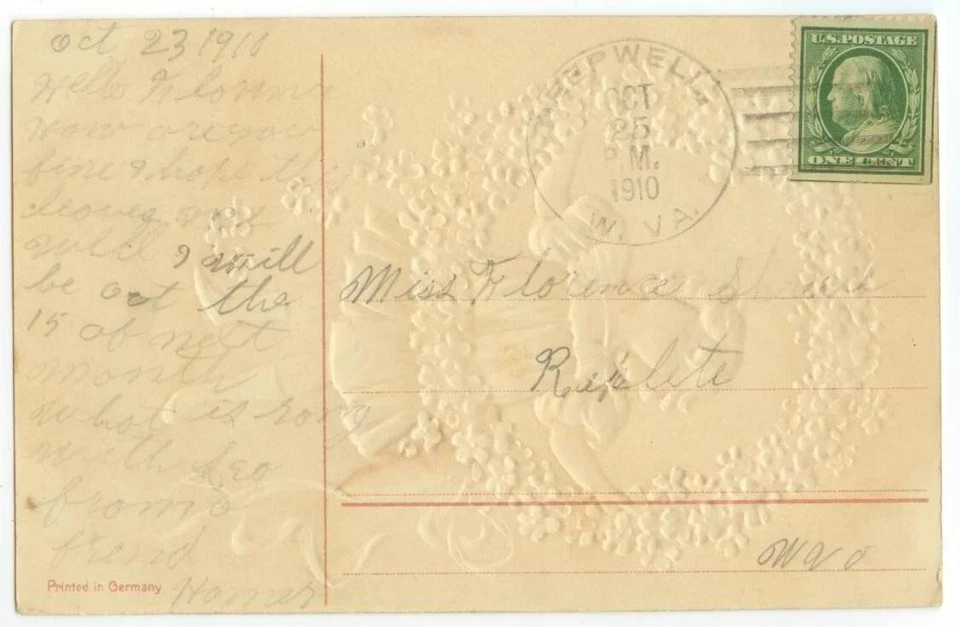 Oct 23 1910
Hello
how are you
fine & hope
leaves
well I will
be out the
15 of next
month
what is rong
with Leo
from a
frend
Homer
Printed in Germany
HEPPWELL,
OCT
25
P.M.
1910
W. VA.
U.S. POSTAGE
ONE CENT
Miss Florence
Replete